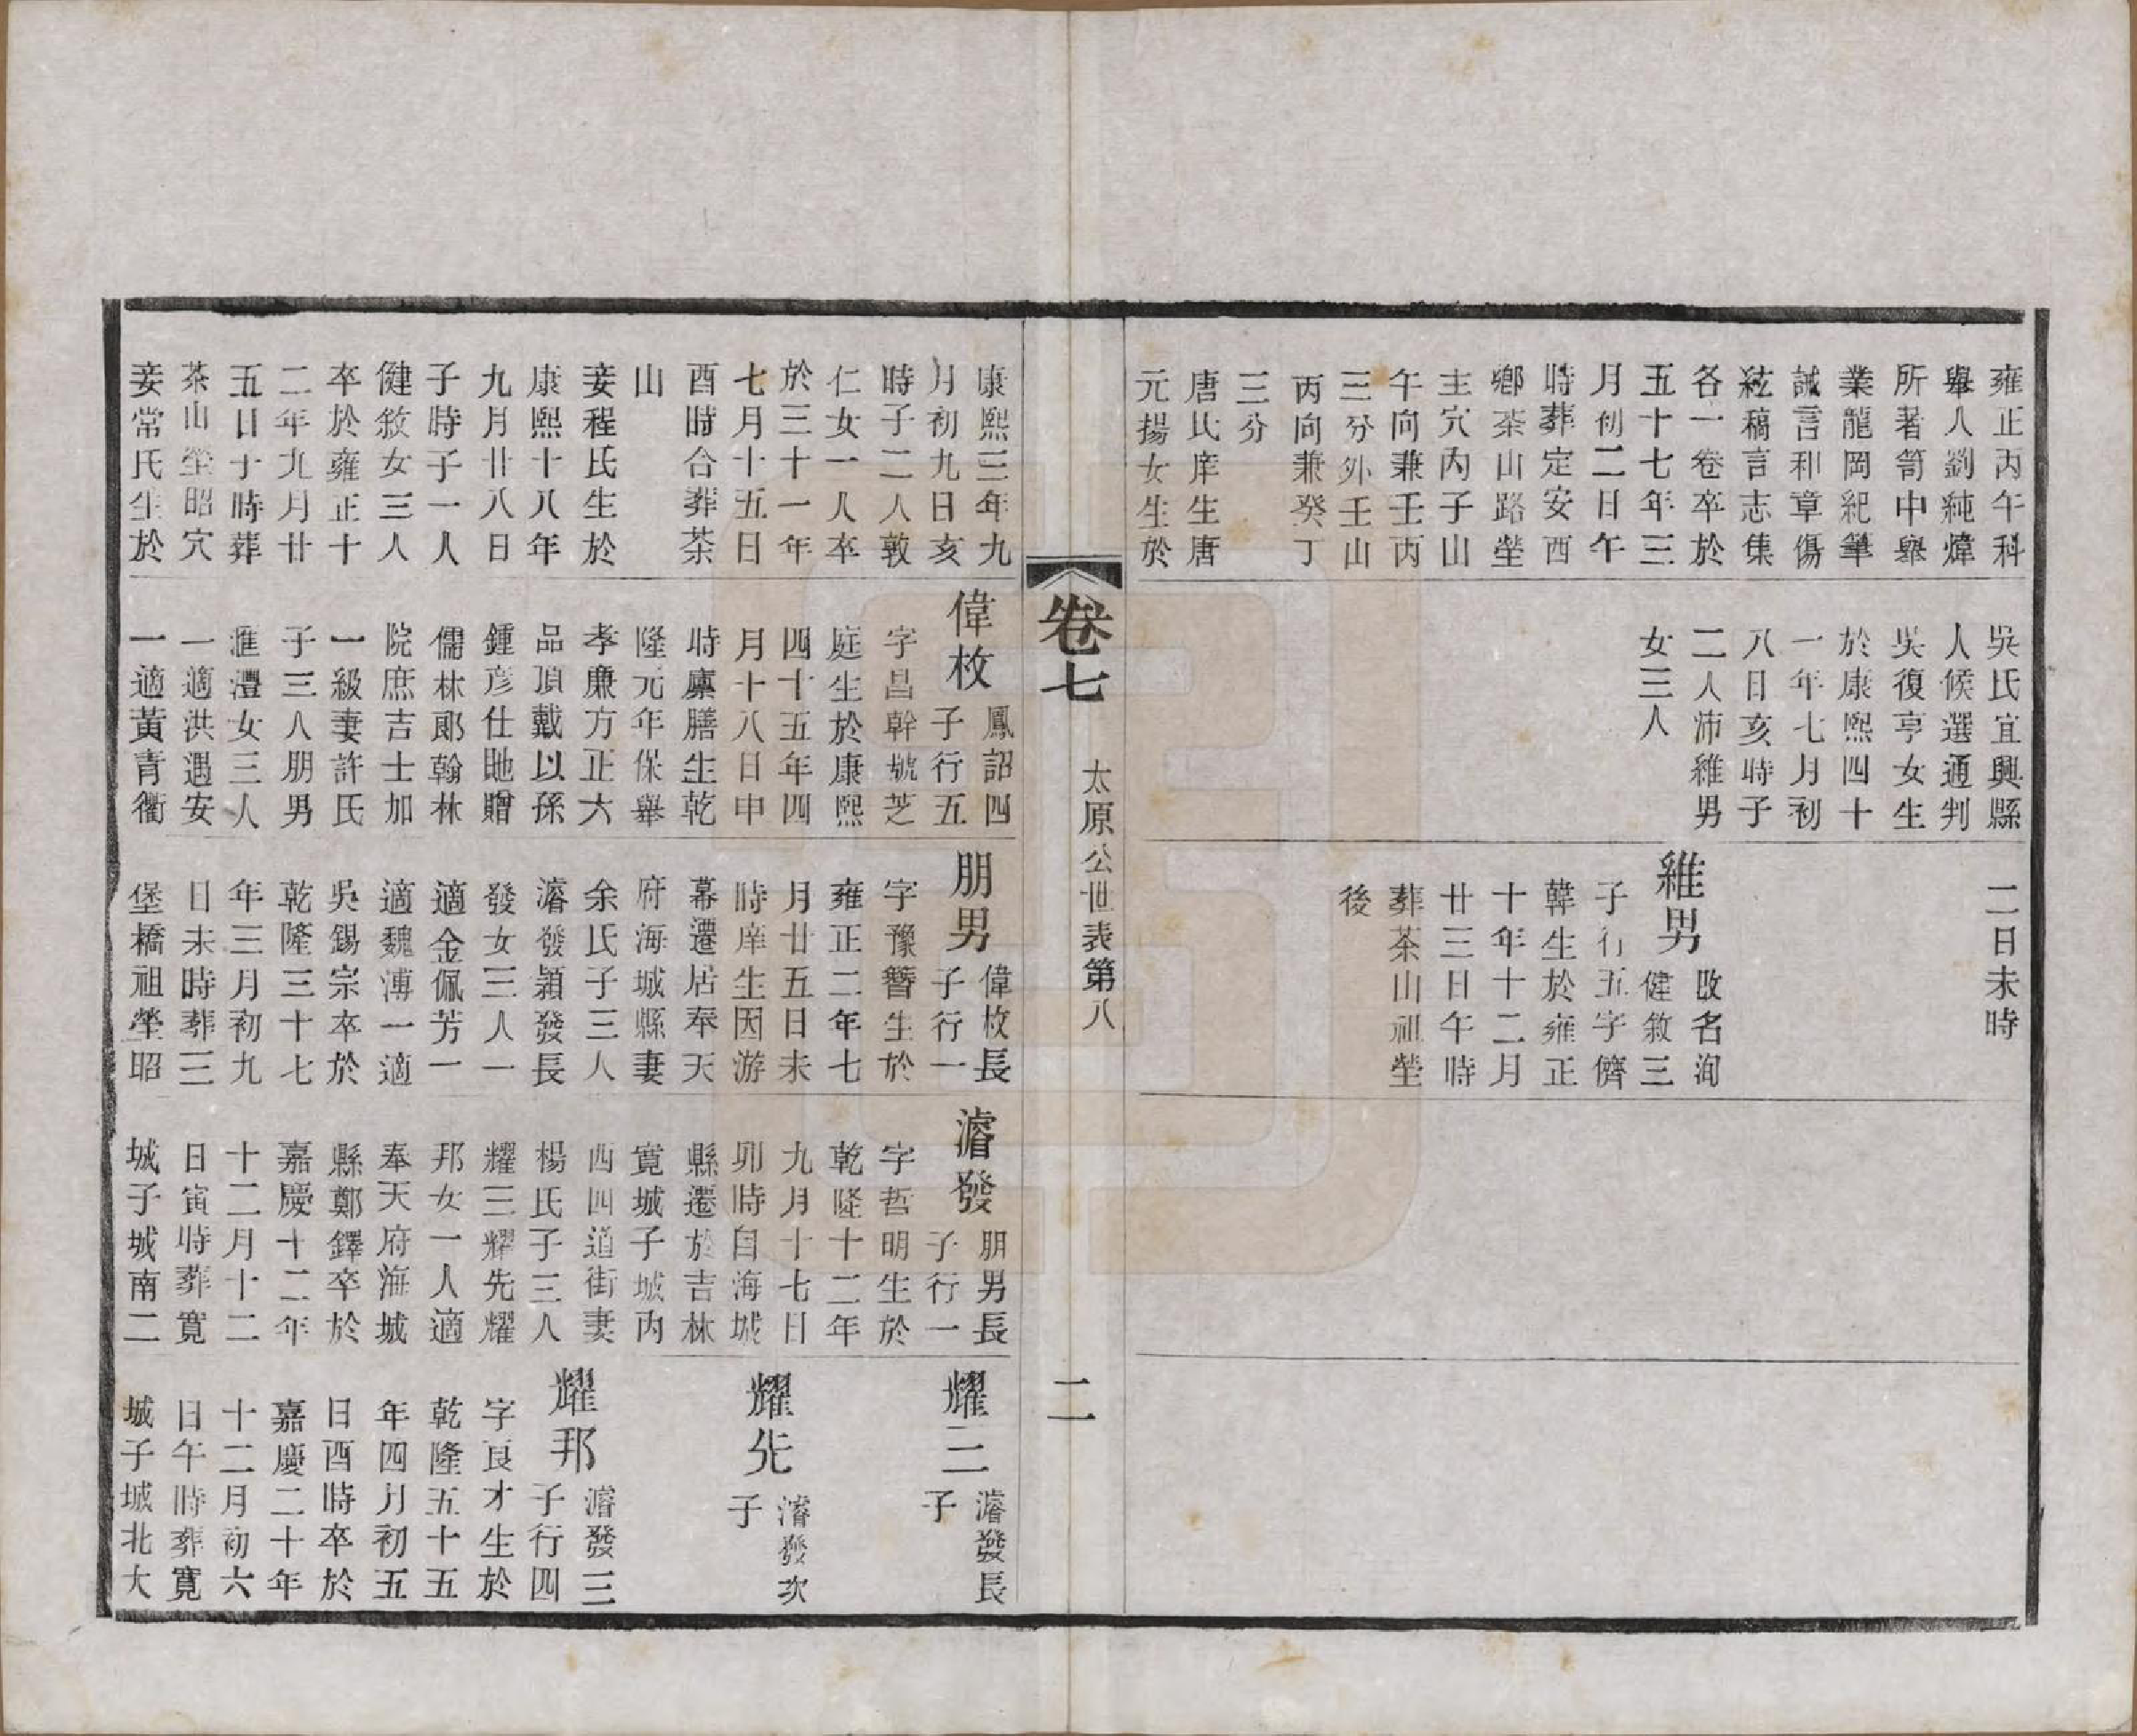 雍正丙午科
舉人劉純煒
所著笥中舉
業龍岡紀筆
誡言和章傷
絃稿言志集
各一卷卒於
五十七年三
月初二日午
時葬定安西
鄉茶山路塋
主穴丙子山
午向兼壬丙
三分外壬山
丙向兼癸丁
三分
唐氏庠生唐
元揚女生於
吳氏宜興縣
人候選通判
吳復亨女生
於康熙四十
一年七月初
八日亥時子
二人沛維男
女三人
二日未時
維男
改名洵
健敘三
子行五字儕
韓生於雍正
十年十二月
廿三日午時
葬茶山祖塋
後
卷七
太原公世表第八
二
康熙三年九
月初九日亥
時子二人敦
仁女一人卒
於三十一年
七月十五日
酉時合葬茶
山
妾程氏生於
康熙十八年
九月廿八日
子時子一人
健敘女三人
卒於雍正十
二年九月廿
五日寸時葬
茶山塋昭穴
妾常氏生於
偉枚
鳳詔四
子行五
字昌幹號芝
庭生於康熙
四十五年四
月十八日申
時廩膳生乾
隆元年保舉
孝廉方正六
品頂戴以孫
鍾彥仕貤贈
儒林郎翰林
院庶吉士加
一級妻許氏
子三人朋男
匯灃女三人
一適洪遇安
一適黃青衢
朋男
偉枚長
子行一
字豫簪生於
雍正二年七
月廿五日未
時庠生因游
幕遷居奉天
府海城縣妻
余氏子三人
濬發潁發長
發女三人一
適金佩芳一
適魏漙一適
吳錫宗卒於
乾隆三十七
年三月初九
日未時葬三
堡橋祖塋昭
濬發
朋男長
子行一
字哲明生於
乾隆十二年
九月十七日
卯時自海城
縣遷於吉林
寬城子城內
西四道街妻
楊氏子三人
耀三耀先耀
邦女一人適
奉天府海城
縣鄭鐸卒於
嘉慶十二年
十二月十二
日寅時葬寬
城子城南二
耀三
濬發長
子
耀先
濬發次
子
耀邦
濬發三
子行四
字良才生於
乾隆五十五
年四月初五
日酉時卒於
嘉慶二十年
十二月初六
日午時葬寬
城子城北大